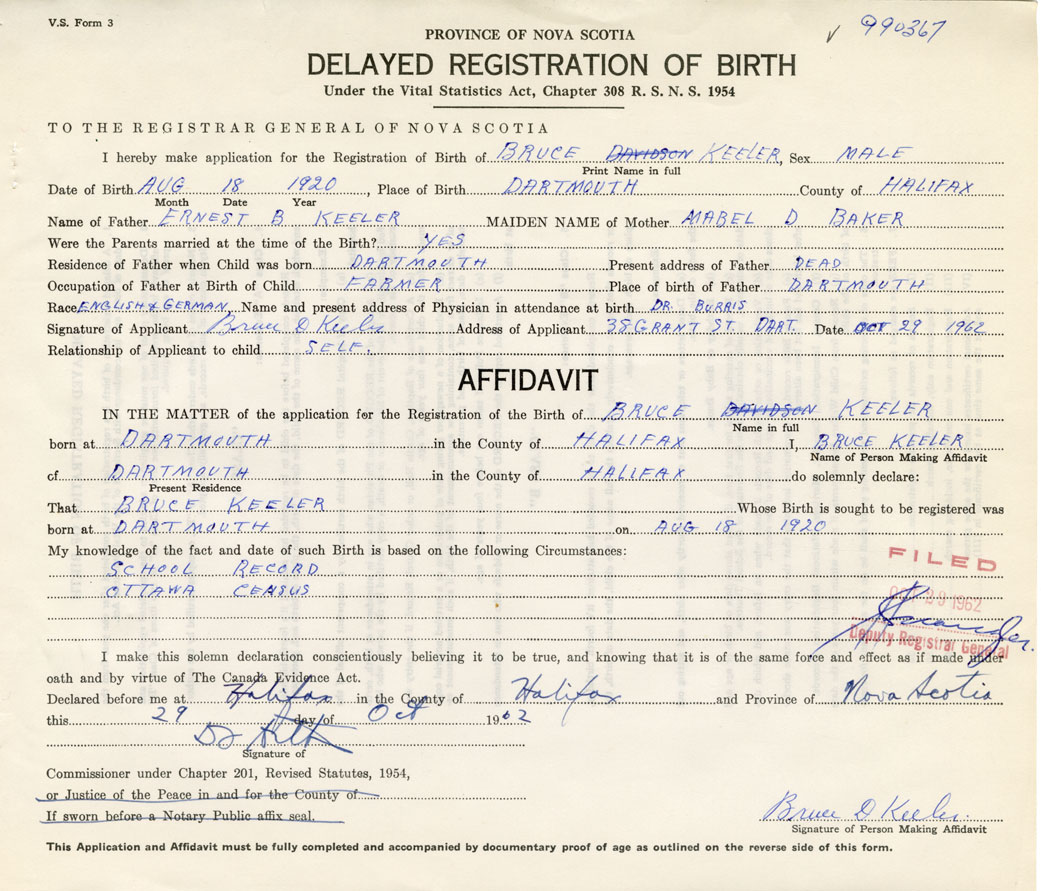 V.S. Form 3
990367
PROVINCE OF NOVA SCOTIA
DELAYED REGISTRATION OF BIRTH
Under the Vital Statistics Act, Chapter 308 R. S. N. S. 1954
TO THE REGISTRAR GENERAL OF NOVA SCOTIA
I hereby make application for the Registration of Birth of BRUCE DAVIDSON KEELER, Sex MALE
Print Name in full
Date of Birth AUG 18 1920, Place of Birth DARTMOUTH County of HALIFAX
Month Date Year
Name of Father ERNEST B KEELER MAIDEN NAME of Mother MABEL D BAKER
Were the Parents married at the time of the Birth? YES
Residence of Father when Child was born DARTMOUTH Present address of Father DEAD
Occupation of Father at Birth of Child FARMER Place of birth of Father DARTMOUTH
Race ENGLISH & GERMAN, Name and present address of Physician in attendance at birth DR. BURRIS
Signature of Applicant Bruce D Keeler Address of Applicant 38 GRANT ST. DART. Date OCT 29 1962
Relationship of Applicant to child SELF.
AFFIDAVIT
IN THE MATTER of the application for the Registration of the Birth of BRUCE DAVIDSON KEELER
Name in full
born at DARTMOUTH in the County of HALIFAX I, BRUCE KEELER
Name of Person Making Affidavit
of DARTMOUTH in the County of HALIFAX do solemnly declare:
Present Residence
That BRUCE KEELER Whose Birth is sought to be registered was
born at DARTMOUTH on AUG 18 1920
My knowledge of the fact and date of such Birth is based on the following Circumstances:
SCHOOL RECORD
OTTAWA CENSUS
FILED
OCT 29 1962
Deputy Registrar General
I make this solemn declaration conscientiously believing it to be true, and knowing that it is of the same force and effect as if made under
oath and by virtue of The Canada Evidence Act.
Declared before me at Halifax in the County of Halifax and Province of Nova Scotia
this 29 day of Oct 1962
Signature of
Commissioner under Chapter 201, Revised Statutes, 1954,
or Justice of the Peace in and for the County of
If sworn before a Notary Public affix seal.
Bruce D Keeler
Signature of Person Making Affidavit
This Application and Affidavit must be fully completed and accompanied by documentary proof of age as outlined on the reverse side of this form.